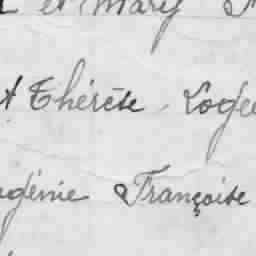 et Mary
t Thérèse Logé
génie Françoise